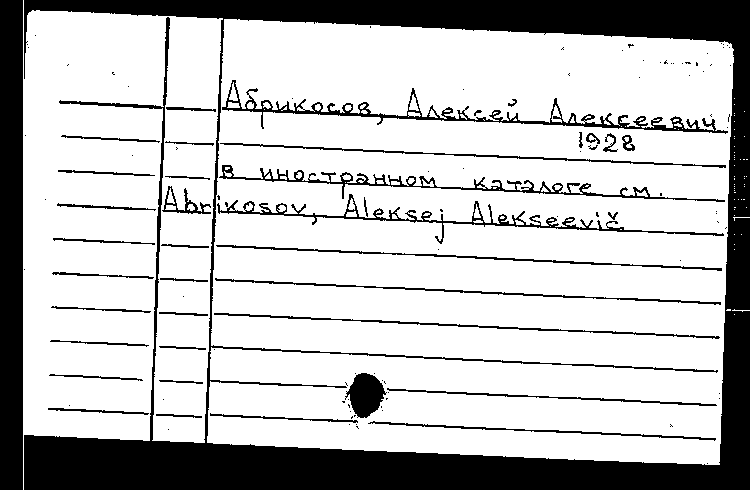 Абрикосов, Алексей Алексеевич
1928
в иностранном каталоге см.
Abrikosov, Aleksej Alekseevič